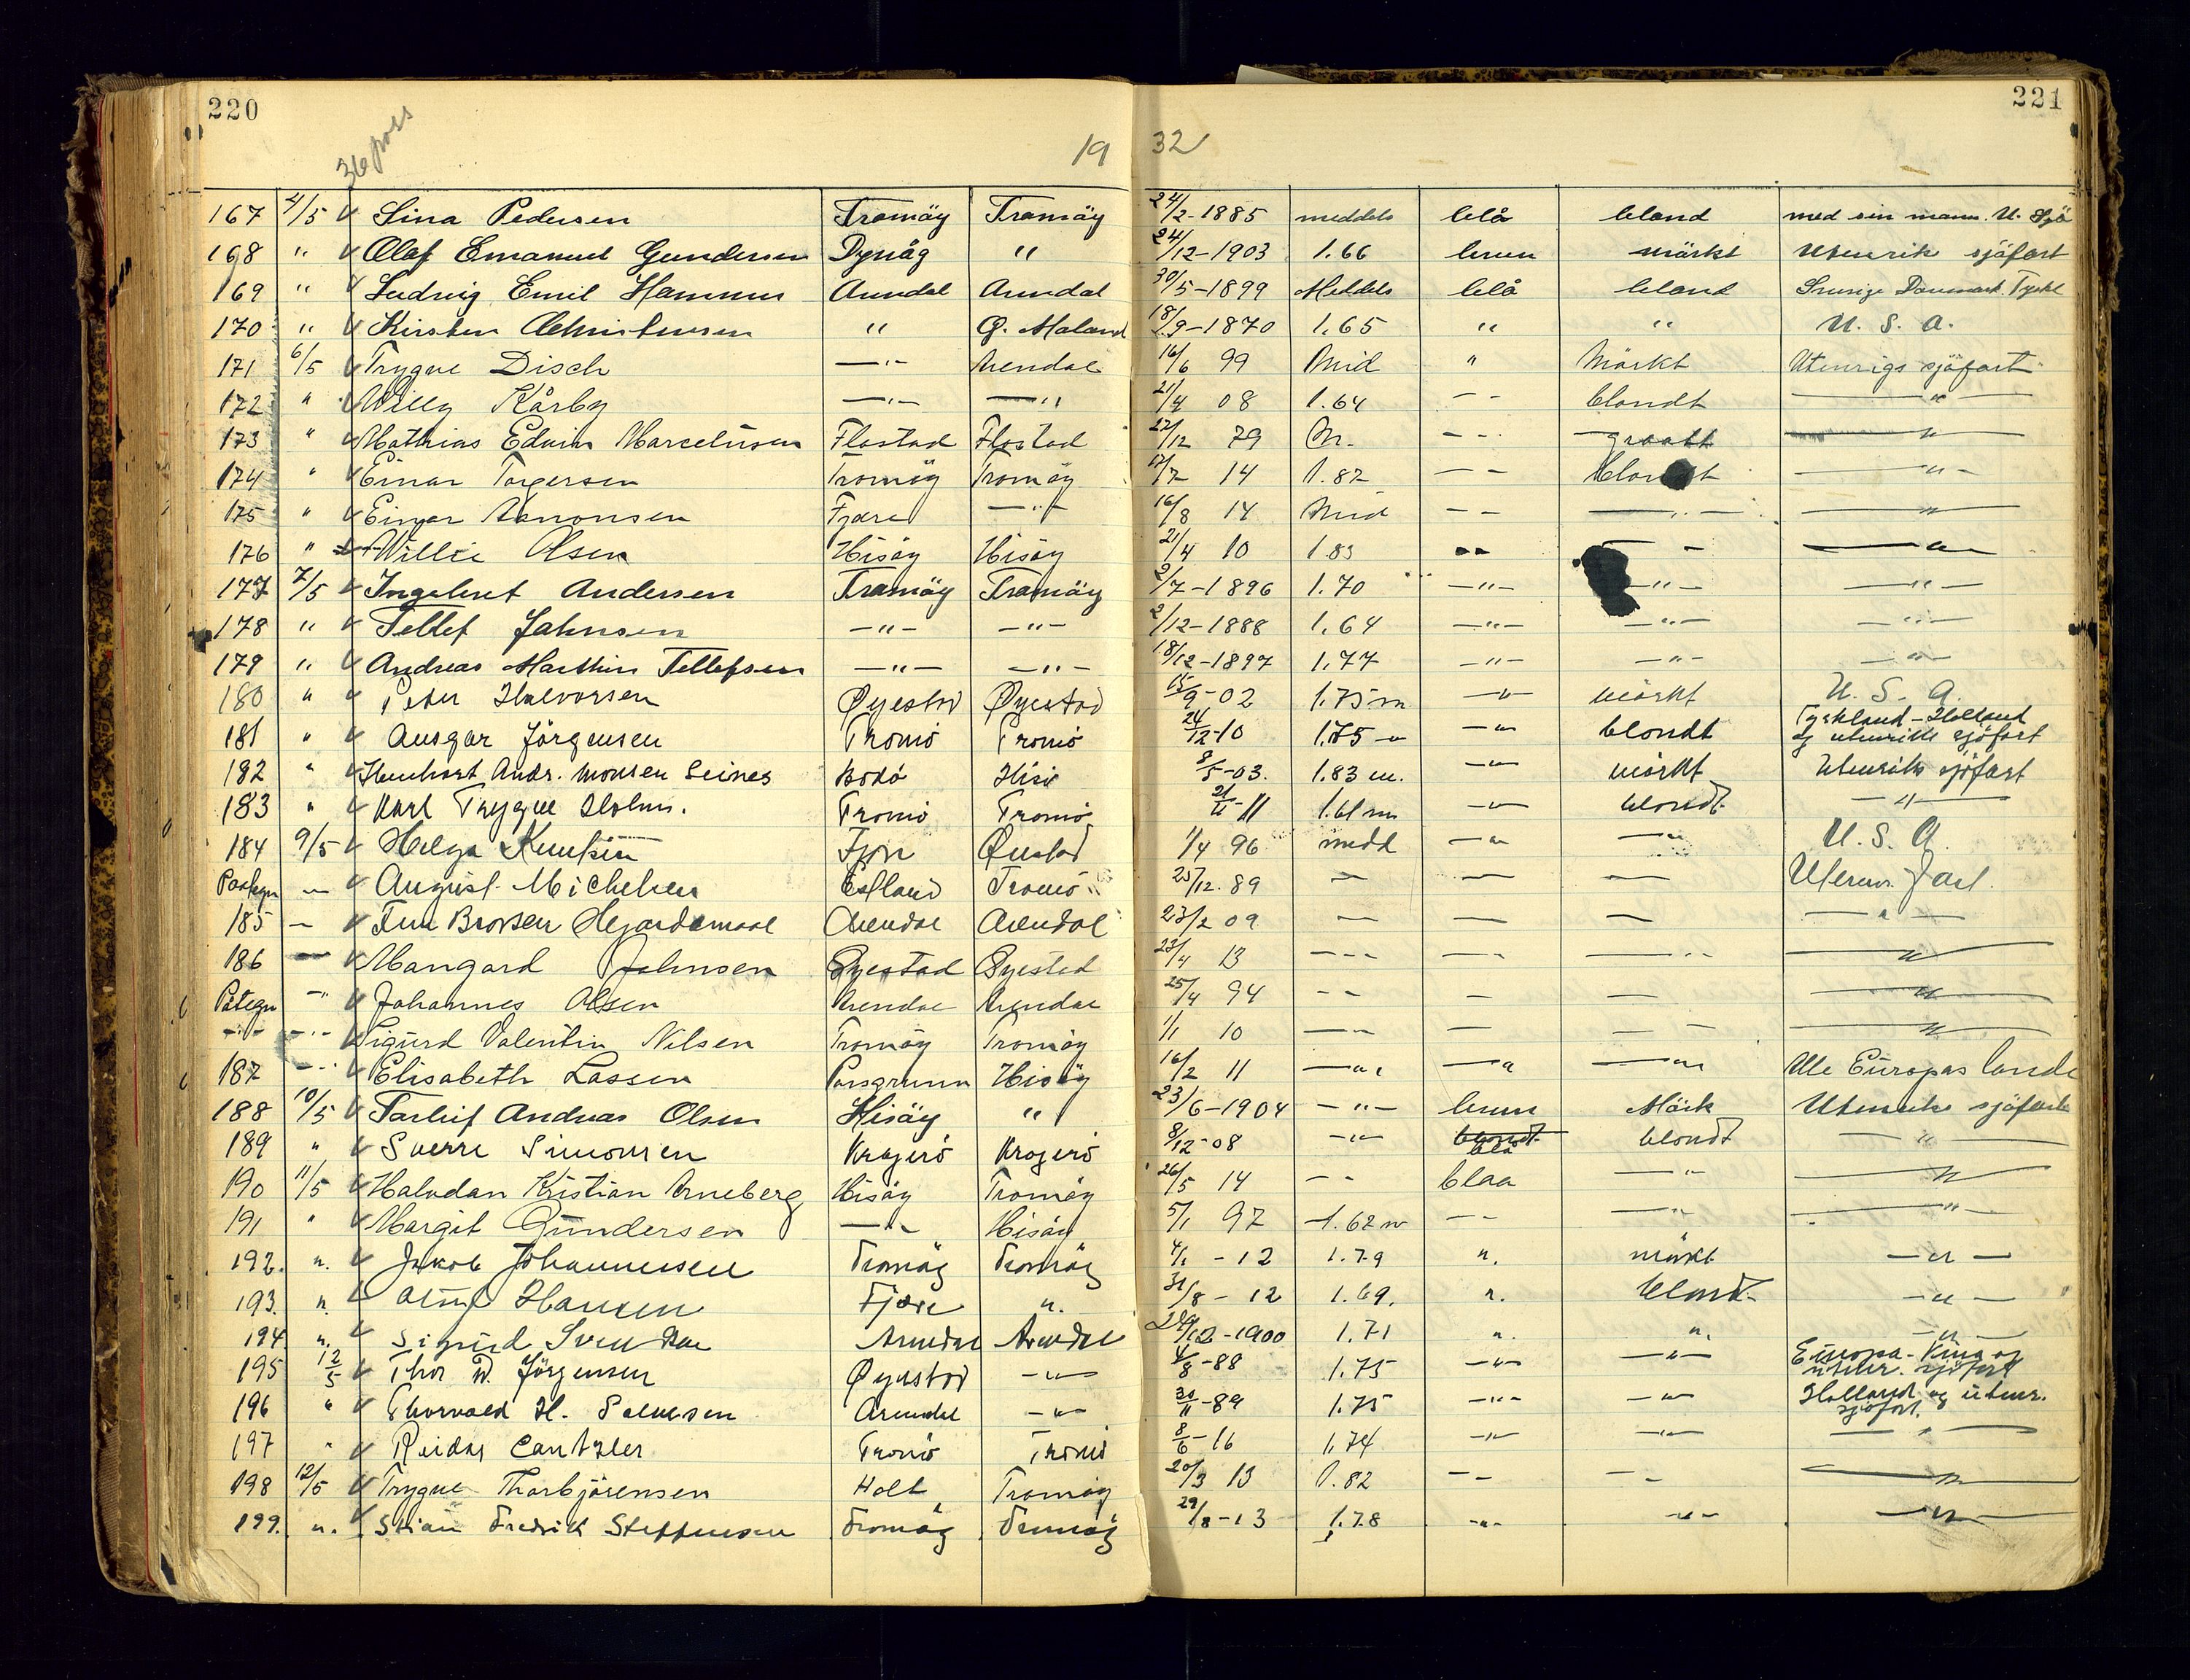 220
221
36 pass
19 32
167 4/5 Lina Pedersen Tromöy Tromöy 24/2-1885 meddels blå blond med sin mann. U. Sjö
168 " Olaf Emanuel Gundersen Dypvåg " 24/12-1903 1.66 brun mörkt Utenriks sjöfart
169 " Ludvig Emil Hammer Arendal Arendal 30/5-1899 Meddels blå blond Sverige Danmark Tyskl
170 " Kirsten Christensen " Ö. Moland 18/9-1870 1.65 " " U. S. A.
171 6/5 Trygve Disch —"— Arendal 16/6 99 Mid " Mörkt Utenrigs sjöfart
172 " Willy Kårby —"— —"— 21/4 08 1.64 - - blondt —"—
173 " Mathias Edvin Marcelïusen Flostad Flostad 22/12 79 M. - - graatt —"—
174 " Einar Torgersen Tromöy Tromöy 17/7 14 1.82 - - blondt —"—
175 " Einar Aanonsen Fjære —"— 16/8 14 Mid - - —"— —"—
176 " Willie Olsen Hisöy Hisöy 21/4 10 1.83 " - - —"—
177 7/5 Ingebret Andersen Tromöy Tromöy 2/7-1896 1.70 —"— —"— —"—
178 " Tellef Johnsen —"— —"— 2/12-1888 1.64 —"— —"— —"—
179 " Andreas Marthin Tellefsen —"— —"— 18/12-1897 1.77 —"— —"— —"—
180 " Peter Halvorsen Øyestad Øyestad 15/9-02 1.75 m —"— mörkt U. S. A.
181 " Ansgar Jörgensen Tromö Tromö 24/12-10 1.75 " —"— blondt Tyskland - Holland
og utenriks sjöfart
182 " Andr. Monsen Seines Bodö Hisö 8/5-03. 1.83 m. —"— mörkt Utenriks sjöfart
183 " Karl Trygve Holm. Tromö Tromö 1.61 m —"— blondt —"—
184 9/5 Helga Knutsen Fjære Øiestad 1/4 96 medd —"— —"— U. S. A.
Paategn — August Michelsen Estland Tromö 25/12. 89 — — — Utenr. Fart.
185 — Finn Brovsen Hegardsmaal Arendal Arendal 23/2 09 — — — —"—
186 — Mangard Johnsen Øyestad Øyested 23/4 13 - - - - - - - —"—
Påtegn —" Johannes Olsen Arendal Arendal 25/4 94 - - — — —"—
—"— —"— Sigurd Valentin Nilsen Tromöy Tromöy 1/1 10 — — — — —"—
187 —"— Elisabeth Lassen Porsgrunn Hisöy 16/2 11 —"— —"— —"— Alle Europas lande
188 10/5 Torleif Andreas Olsen Hisöy " 23/6-1904 —"— brun Mörk Utenriks sjöfart
189 " Sverre Simonsen Kragerö Kragerö 8/12-08 —"— blondt blå blondt —"—
190 11/5 Halvdan Kristian Arneberg Hisöy Tromöy 26/5 14 - - blaa —"— —"—
191 " Margit Gundersen —"— Hisöy 5/1 97 1.62 m - - —"— —"—
192. ". Jakob Johannessen Tromöy Tromöy 4/1 - 12 1.79 ". mörkt —"—
193. ". Hansen Fjære ". 31/8 - 12 1.69. ". blond —"—
194. ". Sigurd Svendsen Arendal Arendal 1900 1.71 ". ". —"—
195 12/5 Thor W. Jörgensen Øyestad —"— 4/8-88 1.75 —"— —"— Europa - Kina og
utenr. sjöfart
196 " Thorvald H. Salvesen Arendal —"— 30/11-89 1.75 —"— —"— Holland og utenr.
sjöfart.
197 " Reidar Cantzler Tromö Tromö 8/6-16 1.74 —"— —"— —"—
198 12/5 Trygve Thorbjörnsen Holt Tromöy 20/3 13 1.82 - - - - —"—
199. ". Stian Fredrik Steffensen Tromöy Tromöy 29/8-13 1.78 —"— —"— —"—